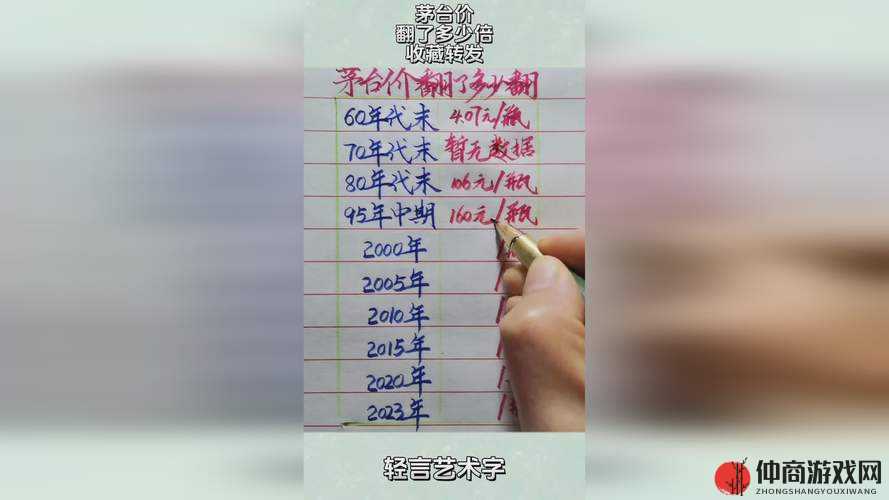 茅台价
翻了多少倍
收藏转发
茅台价翻了多少翻
60年代末 4.07元/瓶
70年代末 暂无数据
80年代末 106元/瓶
95年中期 160元/瓶
2000年 /
2005年 /
2010年 /
2015年 /
2020年 /
2023年 /
轻言艺术字
仲商游戏网
ZHONGSHANGYOUXIWANG